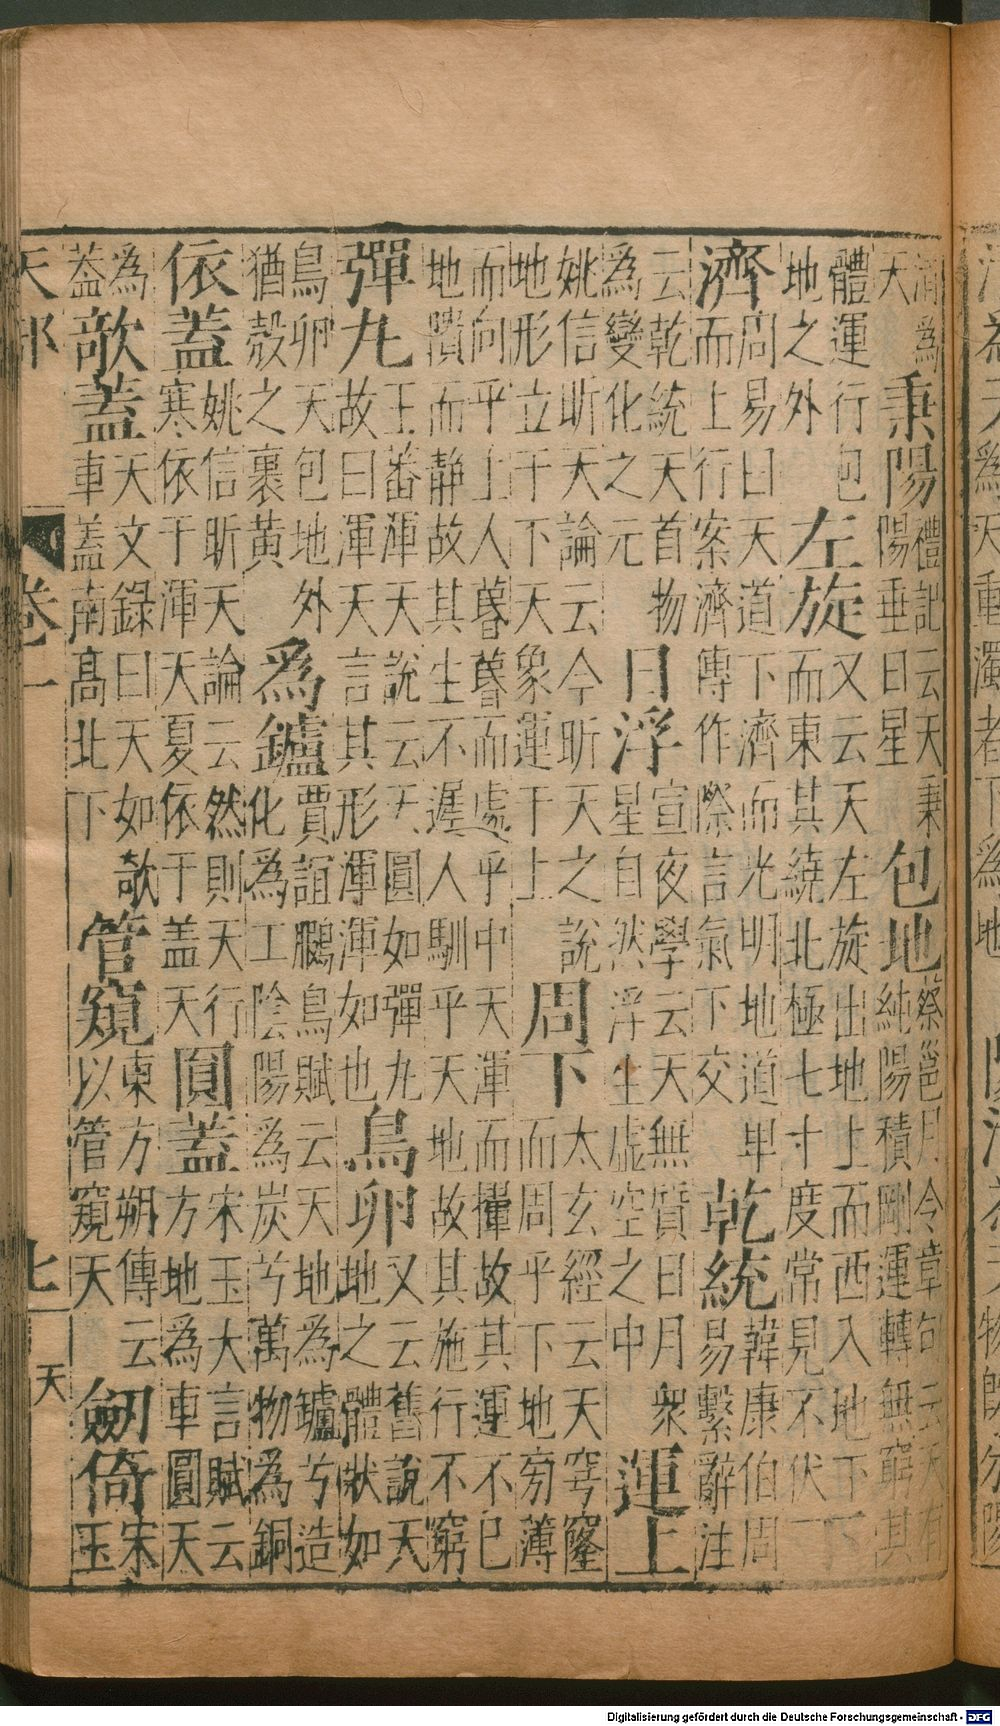 清爲
天
秉陽
禮記云天秉
陽垂日星
包地
蔡邕月令章句云天有
純陽積剛運轉無窮其
體運行包
地之外
左旋
又云天左旋出地上而西入地下下
而東其繞北極七寸度常見不伏
濟
周易曰天道下濟而光明地道卑
而上行案濟傳作際言氣下交
乾統
韓康伯周
易繫辭注
云乾統天首物
爲變化之元
日浮
宣夜學云天無質日月衆
星自然浮生虛空之中
運上
姚信昕天論云今昕天之說
地形立于下天象運于上
周下
太玄經云天穹窿
而周乎下地旁薄
而向乎上人㬱㬱而處乎中天渾而攆故其運不已
地隤而靜故其生不遲人馴乎天地故其施行不窮
彈丸
王蕃渾天說云天圓如彈丸
故曰渾天言其形渾渾如也
鳥卵
又云舊說天
地之體狀如
鳥卵天包地外
猶殻之裹黄
爲鑪
賈誼鵬鳥賦云天地為鑪兮造
化為工陰陽為炭兮萬物為銅
依蓋
姚信昕天論云然則天行
寒依于渾天夏依于盖天
圓蓋
宋玉大言賦云
方地為車圓天
為
蓋
欹蓋
天文錄曰天如欹
車蓋南高北下
管窺
東方朔傳云
以管窺天
劒倚
宋
玉
天部
卷一
七
天
Digitalisierung gefördert durch die Deutsche Forschungsgemeinschaft - DFG